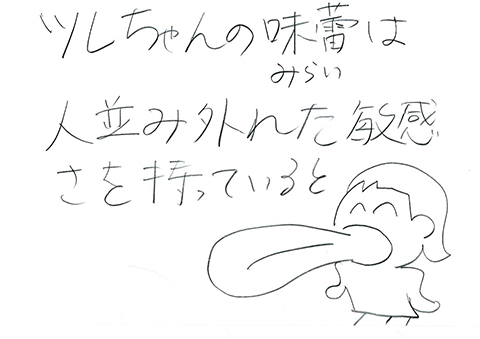 ツレちゃんの味蕾は
みらい
人並み外れた敏感
さを持っていると